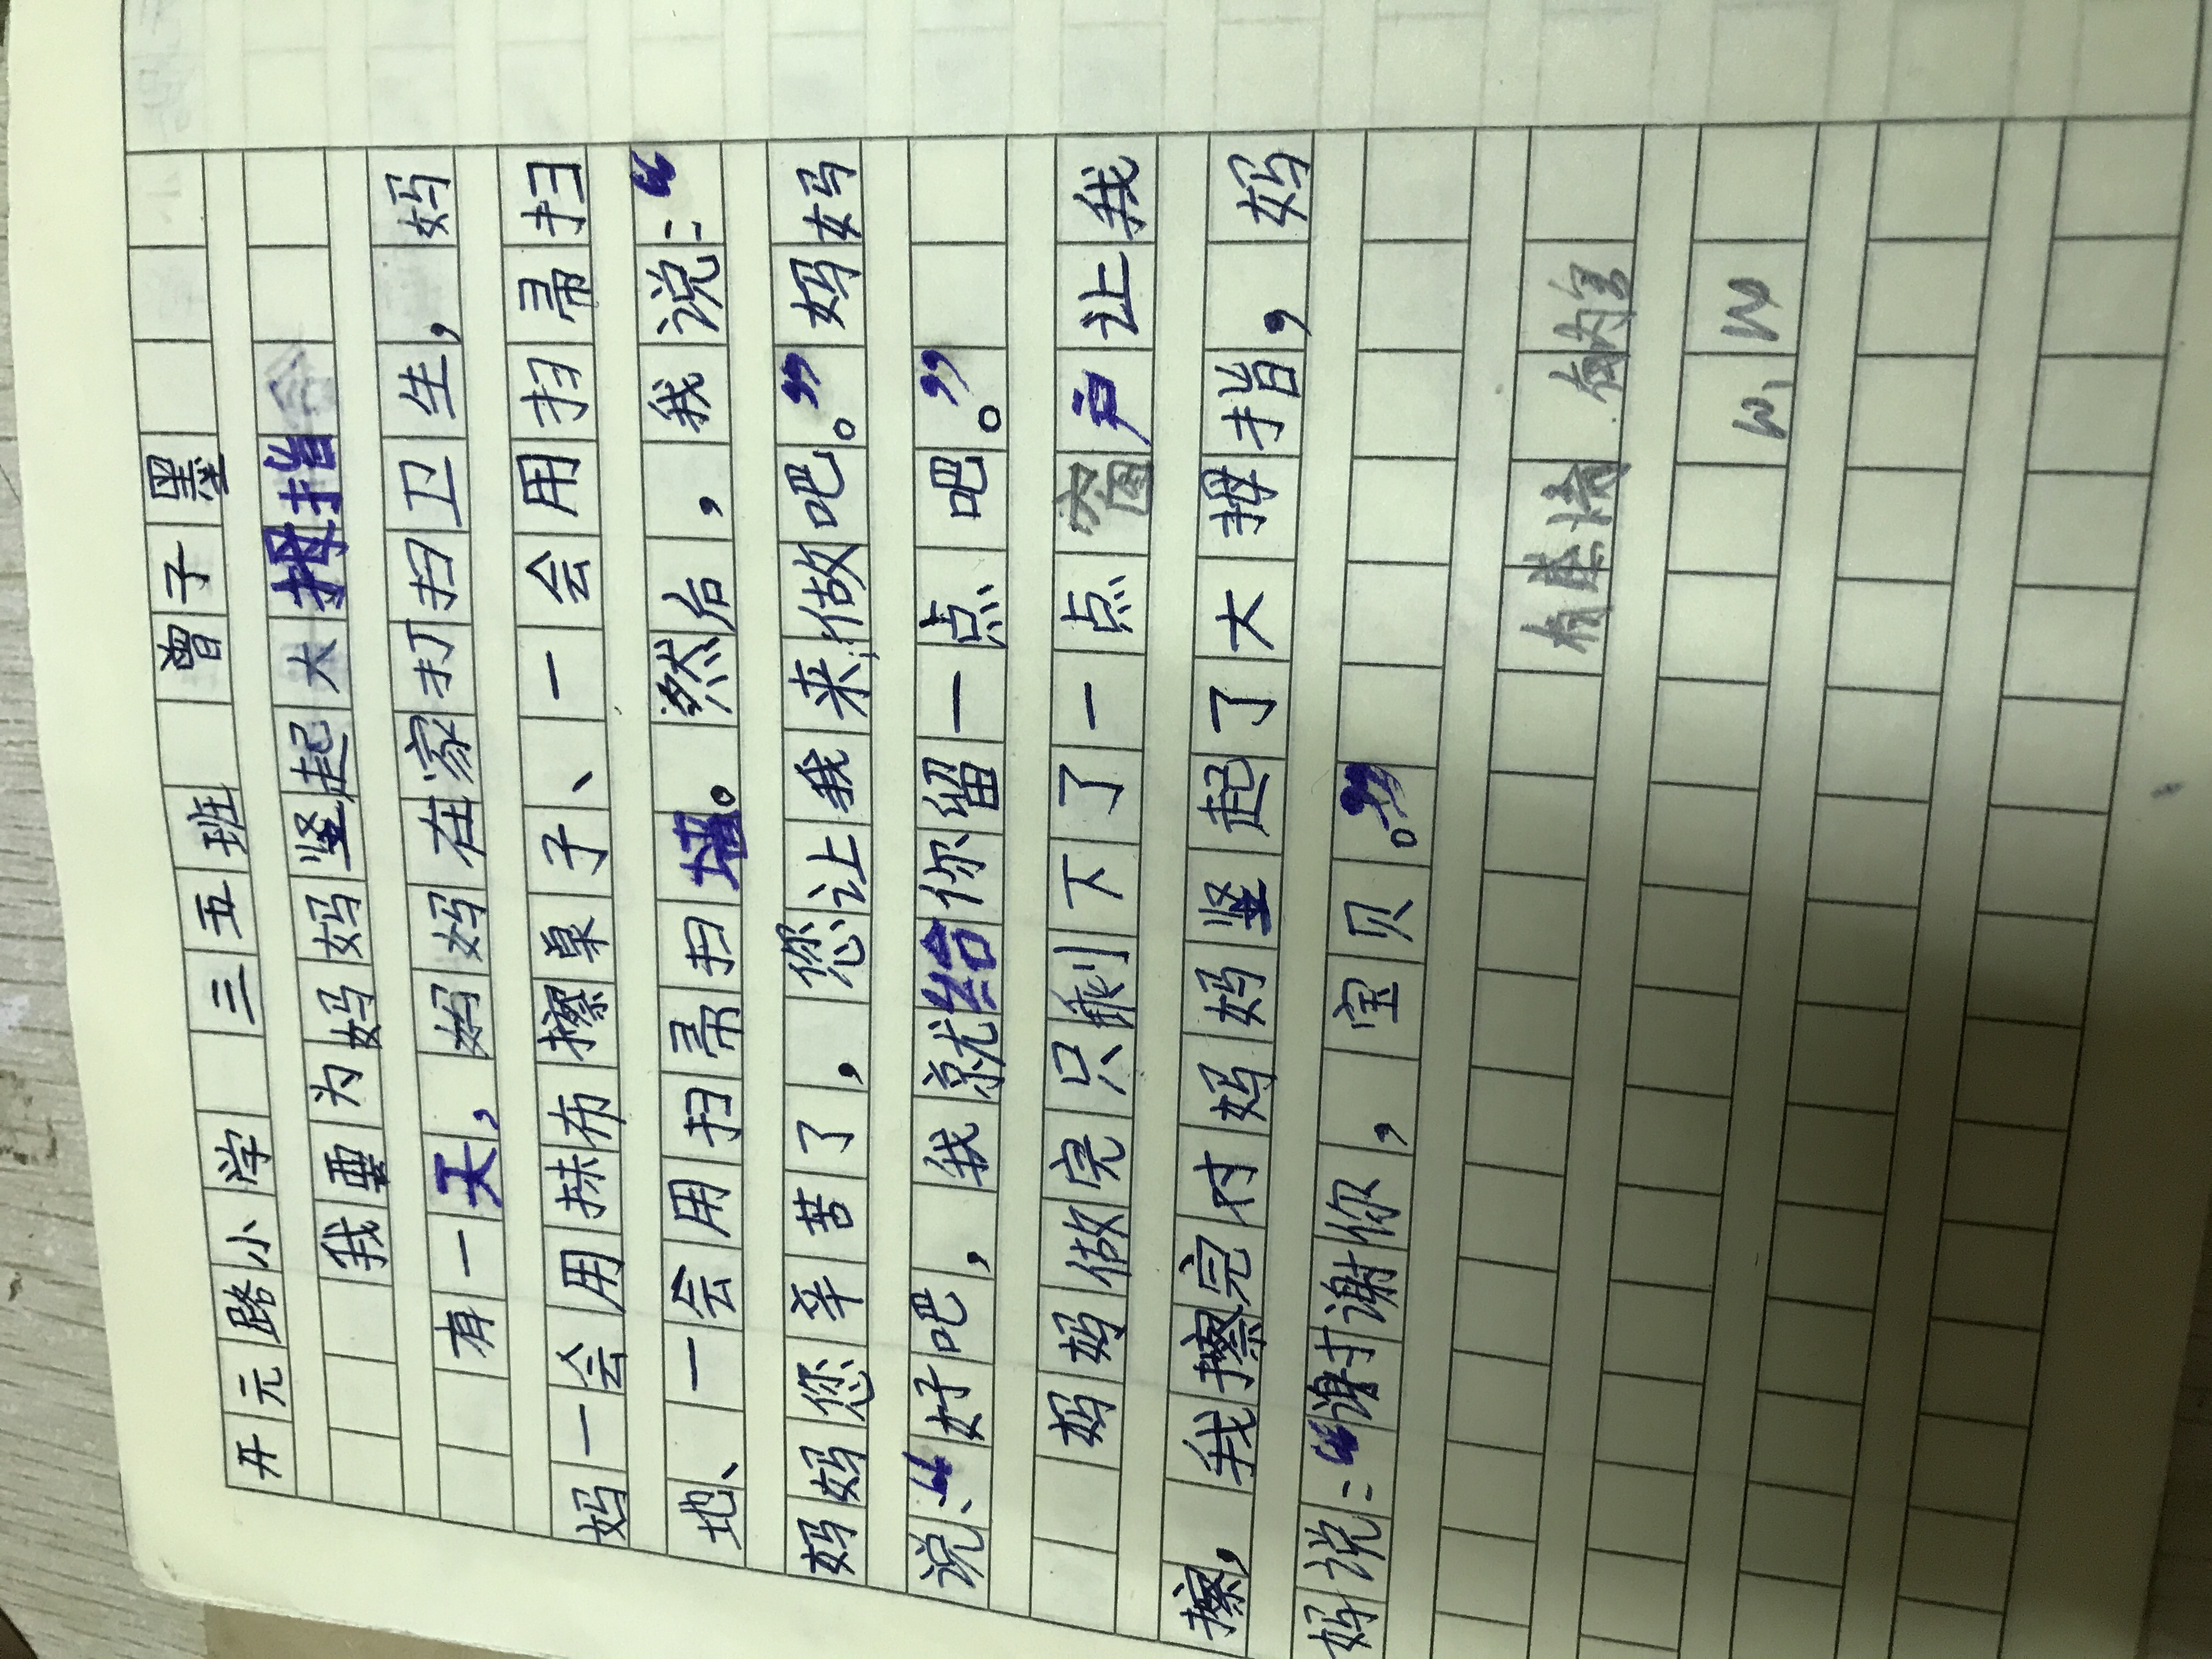 开元路小学 三五班 曾子墨
我要为妈妈竖起大拇指
有一天，妈妈在家打扫卫生，妈
妈一会用抹布擦桌子、一会用扫帚扫
地、一会用扫帚扫墙。然后，我说：“
妈妈您辛苦了，您让我来做吧。”妈妈
说、“好吧，我就给你留一点吧。”
妈妈做完只剩下了一点窗户让我
擦，我擦完对妈妈竖起了大拇指，妈
妈说：“谢谢你，宝贝。”